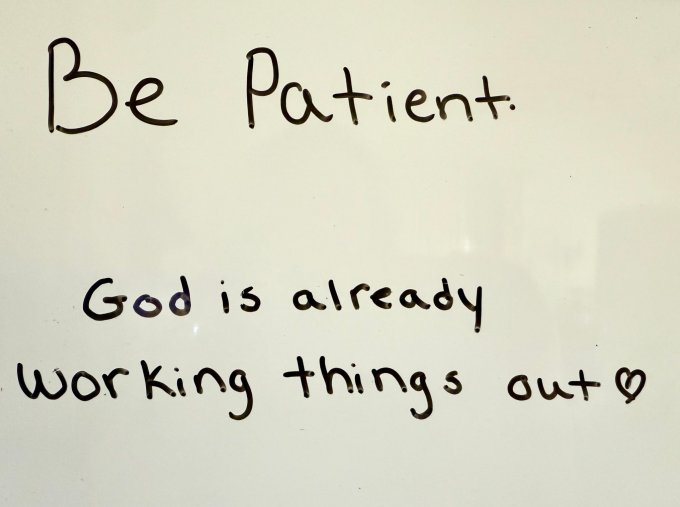 Be Patient.
God is already
working things out♡